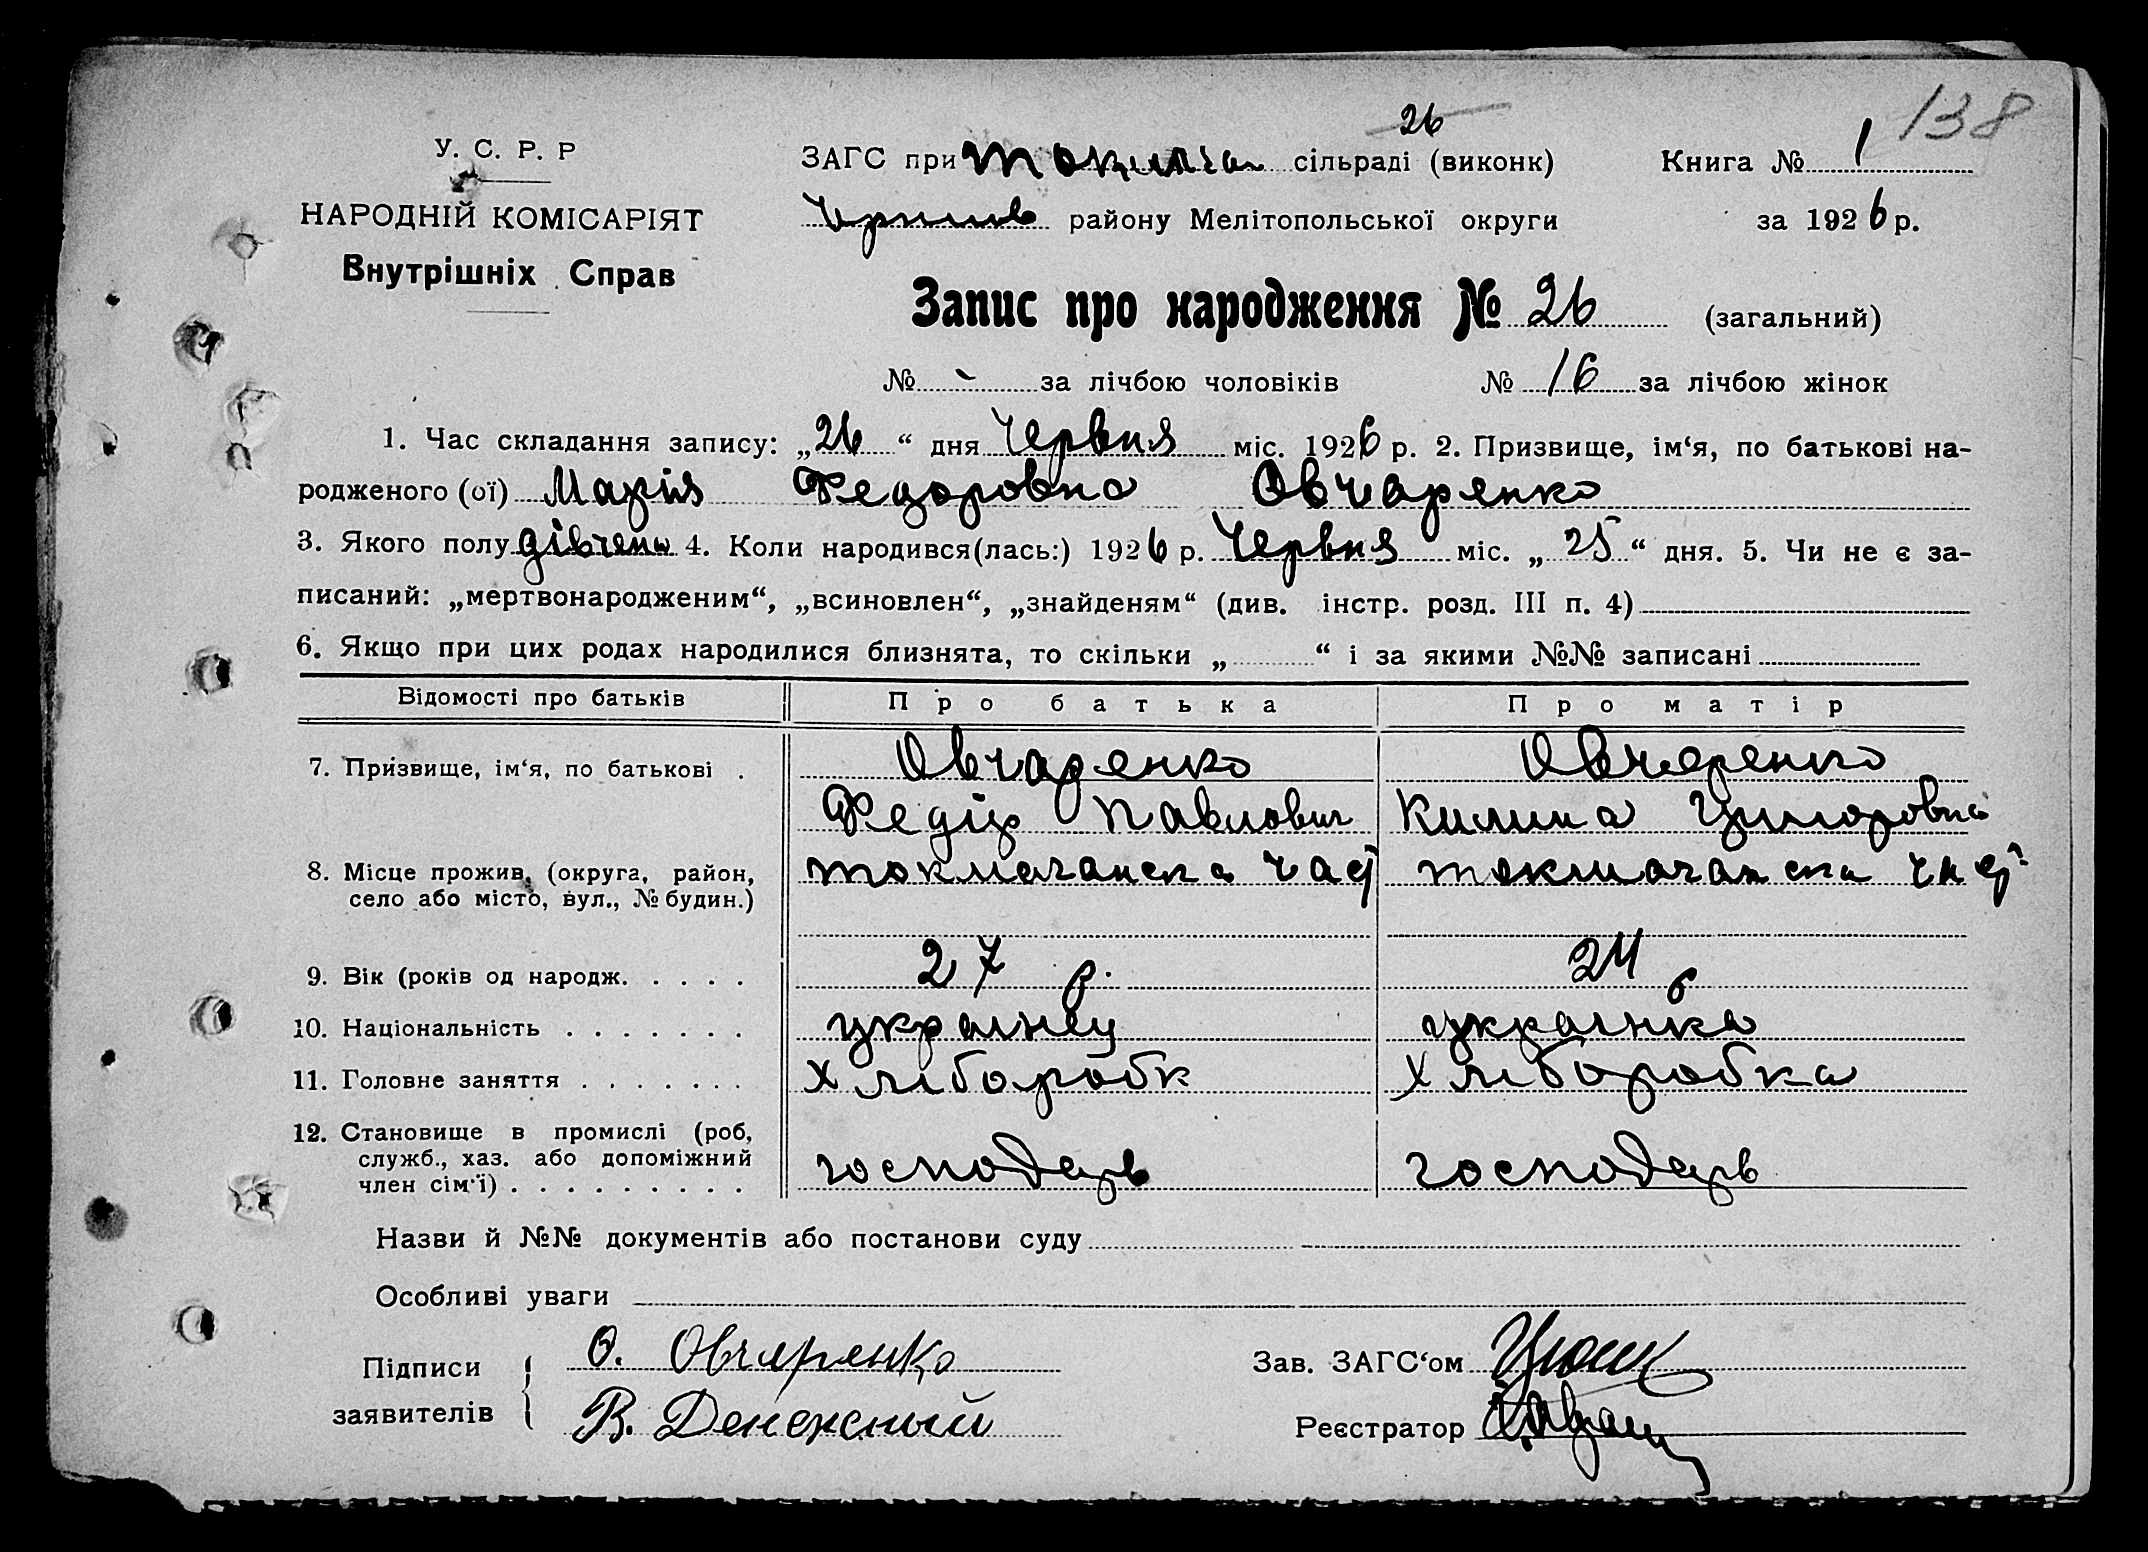 138
26
У. С. Р. Р ЗАГС при сільраді (виконк) Книга № 1
НАРОДНІЙ КОМІСАРІЯТ району Мелітопольської округи за 1926 р.
Внутрішніх Справ
Запис про народження № 26 (загальний)
№ - за лічбою чоловіків № 16 за лічбою жінок
1. Час складання запису: „26“ дня Червня міс. 1926 р. 2. Призвище, ім‘я, по батькові на-
родженого (ої) Марія Федоровна Овчаренко
3. Якого полу дівчена 4. Коли народився(лась:) 1926 р. Червня міс. „25“ дня. 5. Чи не є за-
писаний: „мертвонародженим“, „всиновлен“, „знайденям“ (див. інстр. розд. III п. 4)
6. Якщо при цих родах народилися близнята, то скільки „ “ і за якими №№ записані
Відомості про батьків Про батька Про матір
7. Призвище, ім‘я, по батькові . Овчаренко Овчеренко
Федір Павлович Килина
8. Місце прожив. (округа, район, токмачанска
село або місто, вул., № будин.)
9. Вік (років од народж. . . . . 27 р. 24 р
10. Національність . . . . . . . украінец украінка
11. Головне заняття . . . . . . . хліборобк хліборобка
12. Становище в промислі (роб,
служб., хаз. або допоміжний господарь господарь
член сім‘ї) . . . . . . . . .
Назви й №№ документів або постанови суду
Особливі уваги
Підписи О. Овчаренко Зав. ЗАГС‘ом
заявителів В. Денежный Реєстратор